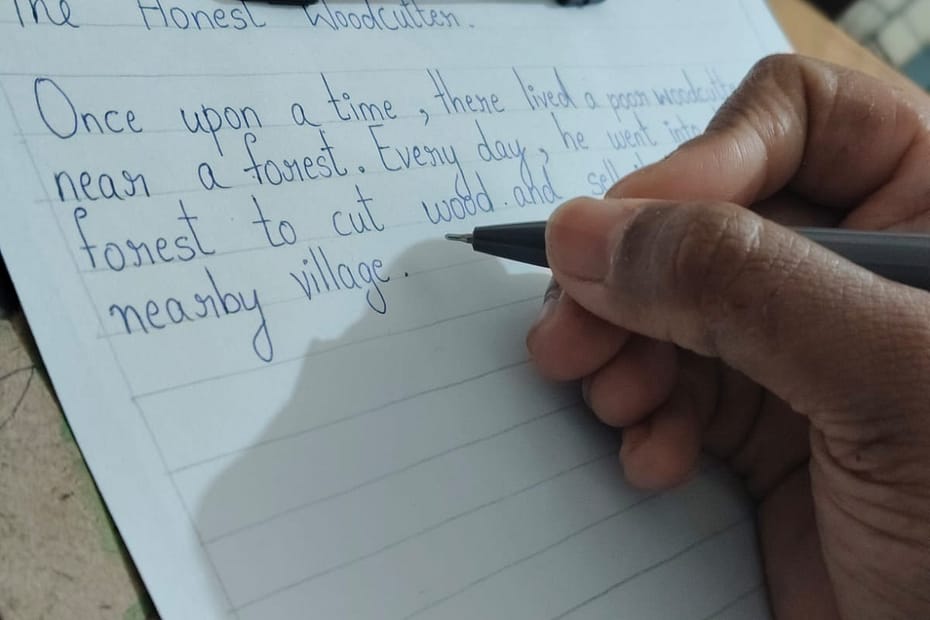 The Honest Woodcutter.
Once upon a time, there lived a poor woodcutter
near a forest. Every day, he went into
forest to cut wood and sell
nearby village.